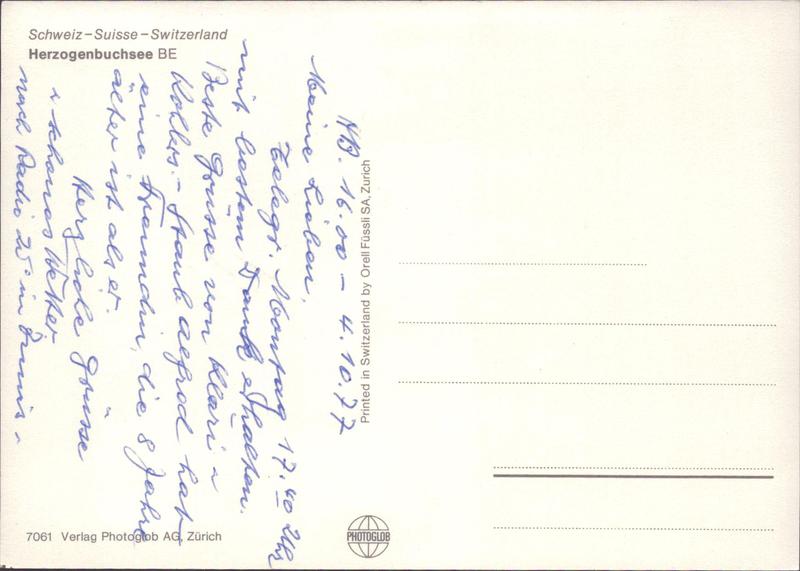 Schweiz – Suisse – Switzerland
Herzogenbuchsee BE
16.00 – 4.10.77
Meine Lieben,
Telegr. Montag 17.40 Uhr
mit bestem Dank erhalten.
Beste Grüsse von Klari u
Kohlers. – Staub Alfred hat
eine Freundin, die 8 Jahre
älter ist als er.
Herzliche Grüsse
u schönes Wetter
nach Radio 25° in
Printed in Switzerland by Orell Füssli SA, Zurich
7061 Verlag Photoglob AG, Zürich
PHOTOGLOB